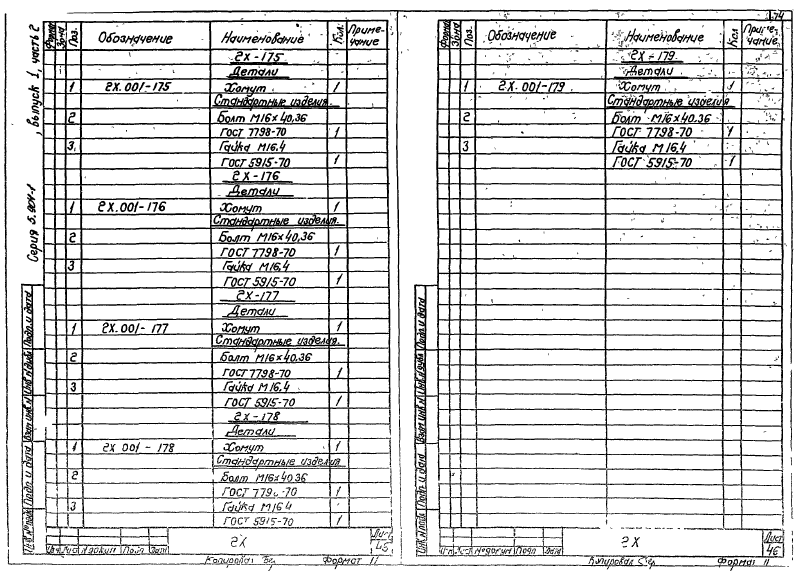 Серия 5.904-1, выпуск 1, часть 2
Форма Зона Поз. Обозначение Наименование Кол. Приме-чание
2Х-175
Детали
1 2Х.001-175 Хомут 1
Стандартные изделия
2 Болт М16×40.36
ГОСТ 7798-70 1
3 Гайка М16.4
ГОСТ 5915-70 1
2Х-176
Детали
1 2Х.001-176 Хомут 1
Стандартные изделия
2 Болт М16×40.36
ГОСТ 7798-70 1
3 Гайка М16.4
ГОСТ 5915-70 1
2Х-177
Детали
1 2Х.001-177 Хомут 1
Стандартные изделия
2 Болт М16×40.36
ГОСТ 7798-70 1
3 Гайка М16.4
ГОСТ 5915-70 1
2Х-178
Детали
1 2Х 001-178 Хомут 1
Стандартные изделия
2 Болт М16×40.36
ГОСТ 7798-70 1
3 Гайка М16 4
ГОСТ 5915-70 1
Инв.№подл. Подп. и дата Взам инв.№ Инв.№дубл. Подп. и дата
Изм Лист №докум Подп. Дата 2Х Лист 45
Копировал Формат 11
74
Форма Зона Поз. Обозначение Наименование Кол Приме-чание
2Х-179
Детали
1 2Х.001-179 Хомут 1
Стандартные изделия
2 Болт М16×40.36
ГОСТ 7798-70 1
3 Гайка М16.4
ГОСТ 5915-70 1
Инв.№подл. Подп. и дата Взам инв.№ Инв.№дубл. Подп. и дата
Изм Лист №докум Подп Дата 2Х Лист 46
Копировал Формат 11